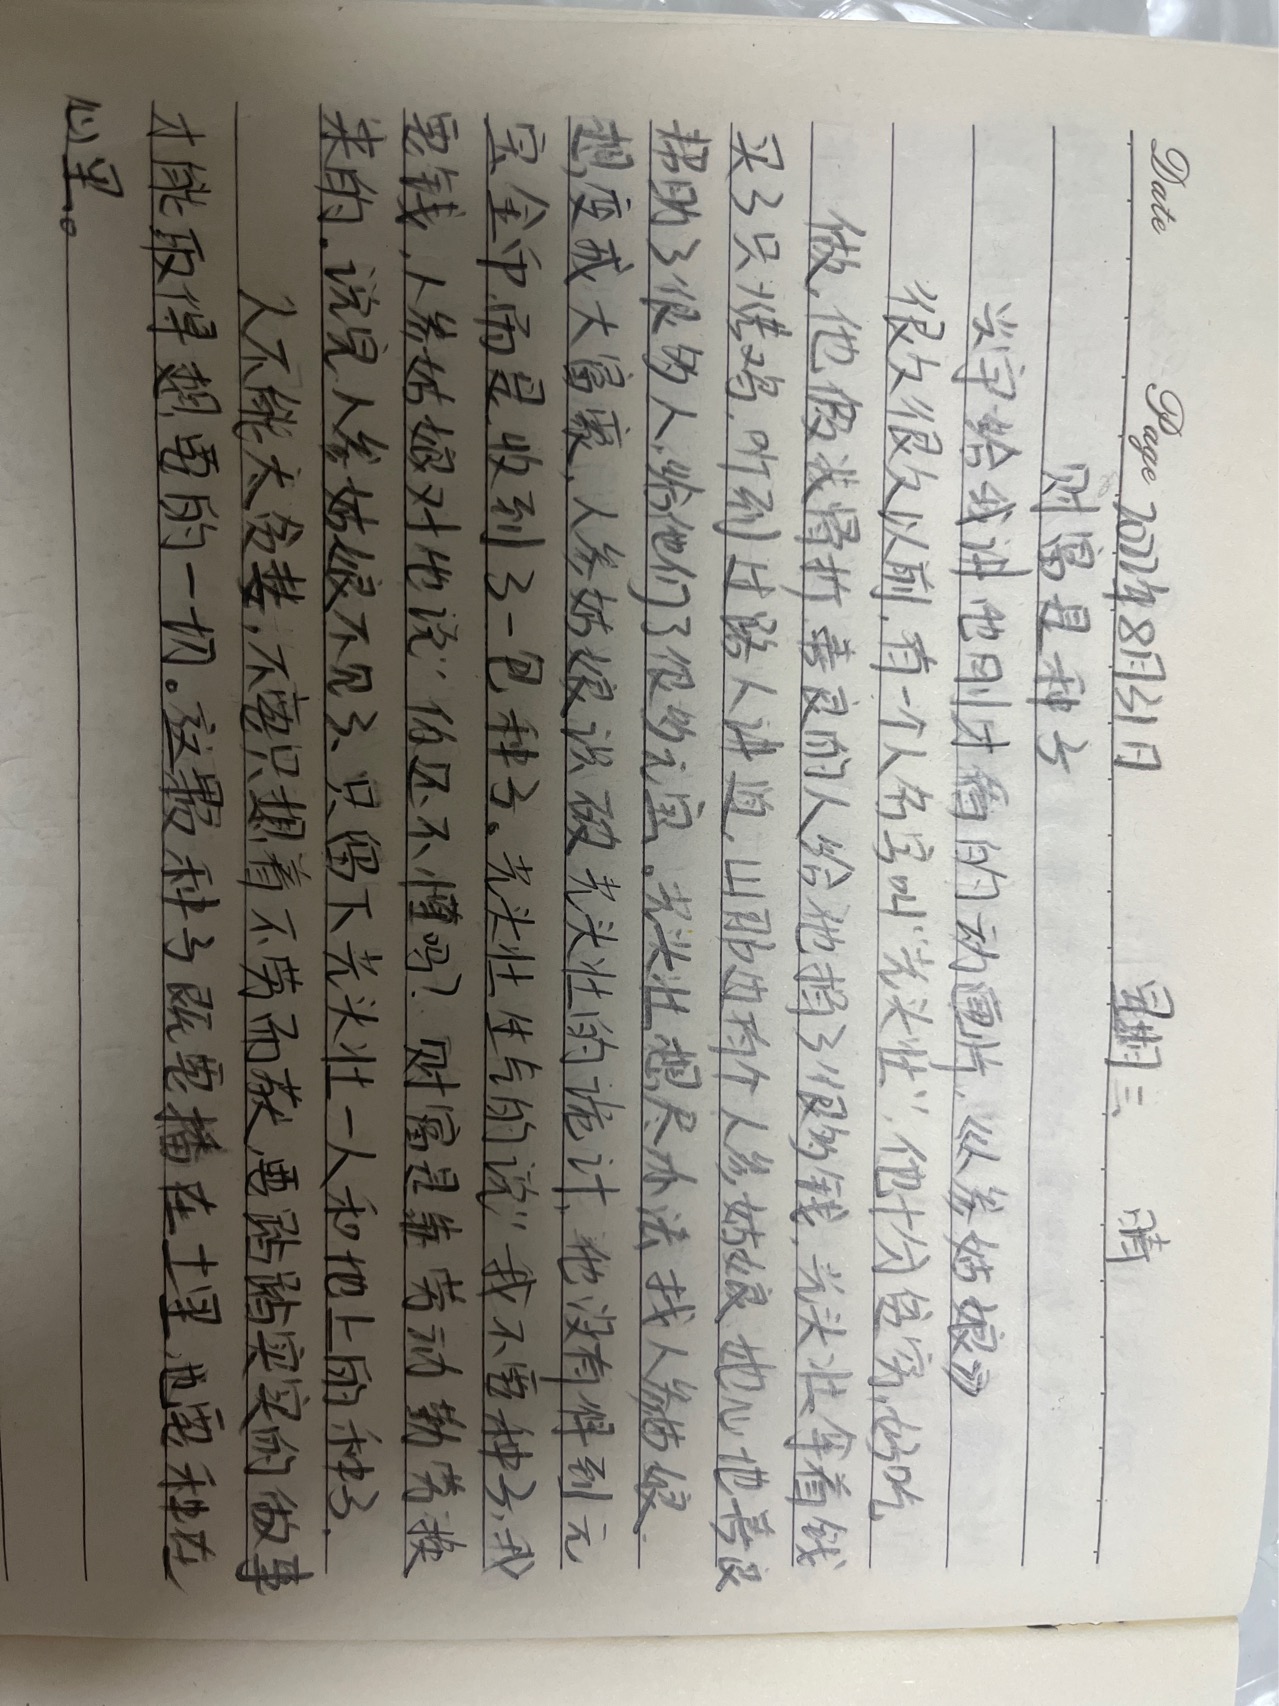 Date Page 2022年8月31日 星期三 晴
财富是种子
当宇给我讲他刚才看的动画片《人参姑娘》
很久很久以前,有一个人名字叫“光头壮”,他十分贪穷,好吃
做,他假装得扑善良的人给他捐了很多钱,光头壮拿着钱
买了只烤鸡,听到过路人讲道,山那边有个人参姑娘,她心地善良
帮助了很多人,给他们了很多元宝。光头壮想尽办法找人参姑娘
想变成大富豪,人参姑娘识破光头壮的诡计,他没有得到元
宝金币,而是收到了一包种子。光头壮生气的说“我不要种子,我
要钱,人参姑娘对他说:你还不懂吗?财富是靠劳动勤劳换
来的。说完人参姑娘不见了,只留下光头壮一人和地上的种子.
人不能太贪婪,不要只想着不劳而获,要踏踏实实的做事
才能取得想要的一切。这颗种子既要播在土里,也要种在
心里。